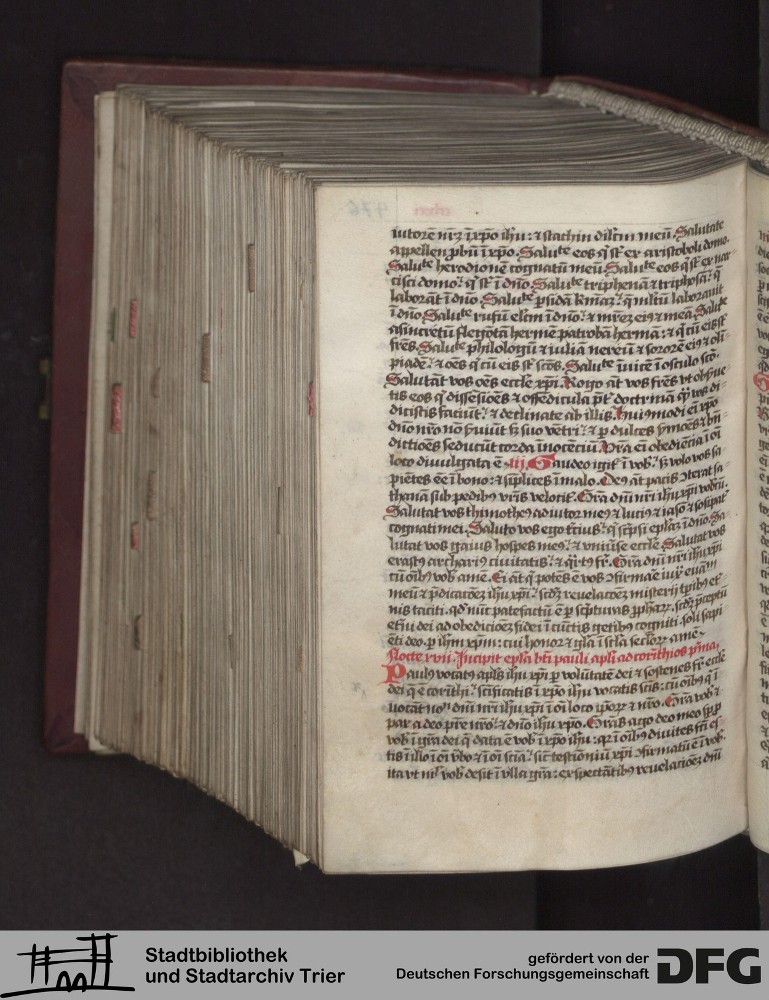 iutorē nr̄ꝫ ī xp̄o ih̄u: ⁊ stachin dilc̄m meū. Salutate
appellen ꝓbū ī xp̄o. Saluᵗᵉ eos q̄ sꝉ ex aristoboli domo.
Saluᵗᵉ herodionē cognatū meū. Saluᵗᵉ eos q̄ sꝉ ex nar
cisci domo: q̄ sꝉ ī dn̄o. Saluᵗᵉ triphenā ⁊ triphosā: q̄
laborāt ī dn̄o. Saluᵗᵉ ꝑsidā q̄ multū laborauit
ī dn̄o. Saluᵗᵉ rufū elc̄m ī dn̄o: ⁊ mr̄ez eiꝰ ⁊ meā. Saluᵗᵉ
asincretū flegōtā hermē patrobā hermā: ⁊ q̄ cū eis sꝉ
fr̄es. Saluᵗᵉ philologū ⁊ iuliā nereū ⁊ sororē eiꝰ ⁊ oli
piadē: ⁊ oēs q̄ cū eis sꝉ sc̄os. Saluᵗᵉ īuicē ī osculo sc̄o.
Salutāt vos oēs eccl̄e xp̄i. Rogo āt vos fr̄es vt obserue
tis eos q̄ dissēsiōes ⁊ offēdicula p̄t doctrinā quā vos di
dicistis faciūt: ⁊ declinate ab illis. Huiꝰmodi ei xp̄o
dn̄o nr̄o nō ẜuiūt sꝫ suo vētri: ⁊ ꝑ dulces ẜmōes ⁊ bn̄
dictiōes seducūt corda īnocētiū. Vr̄a ei obediēcia ī oī
loco diuulgata ē. iij Gaudeo igiꝉ ī vob̄: sꝫ volo vos sa
piētes eē ī bono: ⁊ sīplices ī malo. Deꝰ āt pacis ꝯterat sa
thanā sub pedibꝰ vr̄is velociꝉ. Gr̄a dn̄i nr̄i ih̄u xp̄i vobcū.
Salutat vos thimotheꝰ adiutor meꝰ ⁊ luciꝰ ⁊ iasō ⁊ sosipat̄
cognati mei. Saluto vos ego tr̄ciꝰ: q̄ sc̄psi epl̄az ī dn̄o. Sa
lutat vos gaius hospes meꝰ: ⁊ vniuꝰse eccl̄e. Salutat vos
erastꝰ archariꝰ ciuitatis: ⁊ q̄rtꝰ fr̄. Gr̄a dn̄i nr̄i ih̄u xp̄i
cū oībꝰ vob̄ amē. Ei āt q̄ potēs ē vos ꝯfirmāe iux̄ euām
meū ⁊ p̄dicacōeꝫ ih̄u xp̄i: scd̄ꝫ reuelacōeꝫ misterij tp̄ibꝰ et̄
nis taciti. qd̄ nūc patefactū ē ꝑ sc̄pturas ꝓpharꝝ. scd̄ꝫ p̄ceptū
et̄ni dei ad obedicōeꝫ fidei ī cūctis gētibꝰ cogniti. soli sapi
ēti deo. ꝑ ih̄m xp̄m: cui honor ⁊ gl̄a ī sc̄la sc̄loꝝ amē.
Nocte xvii. Incipit epl̄a bt̄i pauli apl̄i ad corīthios p̄ma.
Paulꝰ vocatꝰ apl̄s ih̄u xp̄i ꝑ volūtatē dei ⁊ sostenes fr̄ eccl̄e
dei q̄ ē corīthi: sc̄ificatis ī xp̄o ih̄u vocatis sc̄is: cū oībꝰ q̄ ī
uocāt noꝰ dn̄i nr̄i ih̄u xp̄i ī oī loco ip̄oꝝ ⁊ nr̄o. Gr̄a vob̄ ⁊
pax a deo pr̄e nr̄o: ⁊ dn̄o ih̄u xp̄o. Grās ago deo meo sp̄ ꝓ
vob̄ ī gr̄a dei q̄ data ē vob̄ ī xp̄o ih̄u: qꝛ ī oībꝰ diuites fc̄i es̄
tis ī illo ī oī v̄bo ⁊ ī oī sciā: sic̄ testīoniū xp̄i ꝯfirmatū ē ī vob̄.
ita vt nil̄ vob̄ desit ī vlla gr̄a: expectātibꝰ reuelacioeꝫ dn̄i
Stadtbibliothek
und Stadtarchiv Trier
gefördert von der
Deutschen Forschungsgemeinschaft
DFG